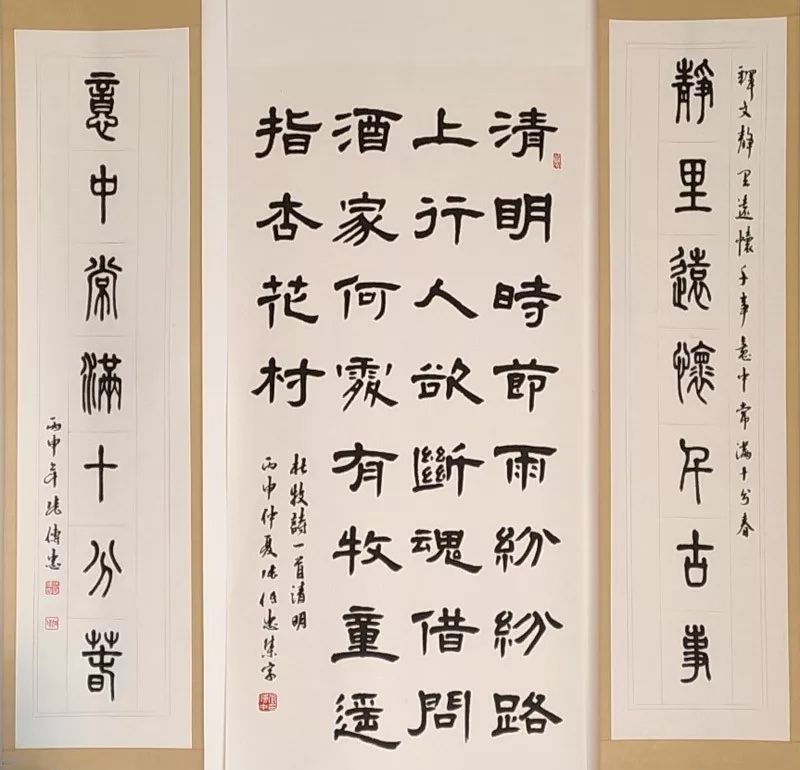 釋文靜里遠懷千事意中常滿十分春
靜里遠懷千古事
清明時節雨紛紛路
上行人欲斷魂借問
酒家何處有牧童遥
指杏花村
杜牧詩一首清明
丙申仲夏張傳忠集字
意中常滿十分春
丙申年張傳忠